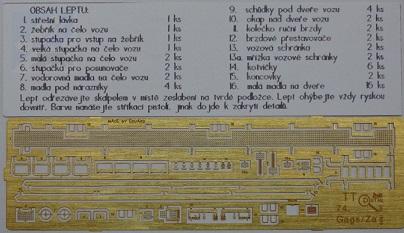 OBSAH LEPTU:
1. střešní lávka 1 ks
2. žebřík na čelo vozu 1 ks
3. stupačka pro vstup na žebřík 1 ks
4. velká stupačka na čelo vozu 1 ks
5. malá stupačka na čelo vozu 2 ks
6. stupačka pro posunovače 2 ks
7. vodorovná madla na čelo vozu 2 ks
8. madla pod nárazníky 4 ks
9. schůdky pod dveře vozu 4 ks
10. okap nad dveře vozu 2 ks
11. kolečko ruční brzdy 2 ks
12. brzdové přestavovače 2 ks
13. vozová schránka 2 ks
13a. mřížka vozové schránky 2 ks
14. kotvičky 6 ks
15. koncovky 2 ks
16. malá madla na dveře 16 ks
Lept odřezávejte skalpelem v místě zeslabení na tvrdé podložce. Lept ohýbejte vždy ryskou
dovnitř. Barvu nanášejte stříkací pistolí, jinak dojde k zakrytí detailů.
MADE BY EDUARD
DT
Gags/Zas